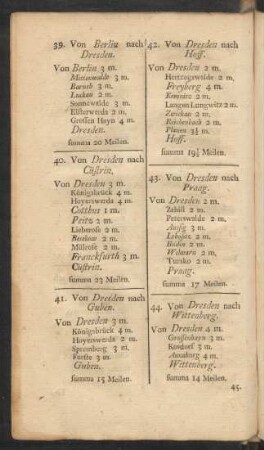 39. Von Berlin nach
Dresden.
Von Berlin 3 m.
Mariewalde 3 m.
Baruth 3 m.
Luckau 2 m.
Sonnewalde 3 m.
Elsterwerda 2 m.
Grossen Hayn 4 m.
Dresden.
summa 20 Meilen.
40. Von Dresden nach
Cüstrin.
Von Dresden 3 m.
Königsbrück 4 m.
Hoyerswerda 4 m.
Cottbus 1 m.
Peitz 2 m.
Lieberose 2 m.
Beskow 2 m.
Müllrose 2 m.
Franckfurth 3 m.
Cüstrin.
summa 23 Meilen.
41. Von Dresden nach
Guben.
Von Dresden 3 m.
Königsbrück 4 m.
Hoyerswerda 2 m.
Spremburg 3 m.
Forste 3 m.
Guben.
summa 15 Meilen.
42. Von Dresden nach
Hoff.
Von Dresden 2 m.
Hertzogswalde 2 m.
Freyberg 4 m.
Kemnitz 2 m.
Lungwitz 2 m.
Zwickau 2 m.
Reichenbach 2 m.
Plauen 3½ m.
Hoff.
summa 19½ Meilen.
43. Von Dresden nach
Praag.
Von Dresden 2 m.
Zehist 2 m.
Peterswalde 2 m.
Aussig 3 m.
2 m.
Budin 2 m.
Welwarn 2 m.
Tursko 2 m.
Praag.
summa 17 Meilen.
44. Von Dresden nach
Wittenberg.
Von Dresden 4 m.
Grossenhayn 3 m.
3 m.
Annaburg 4 m.
Wittenberg.
summa 14 Meilen.
45.